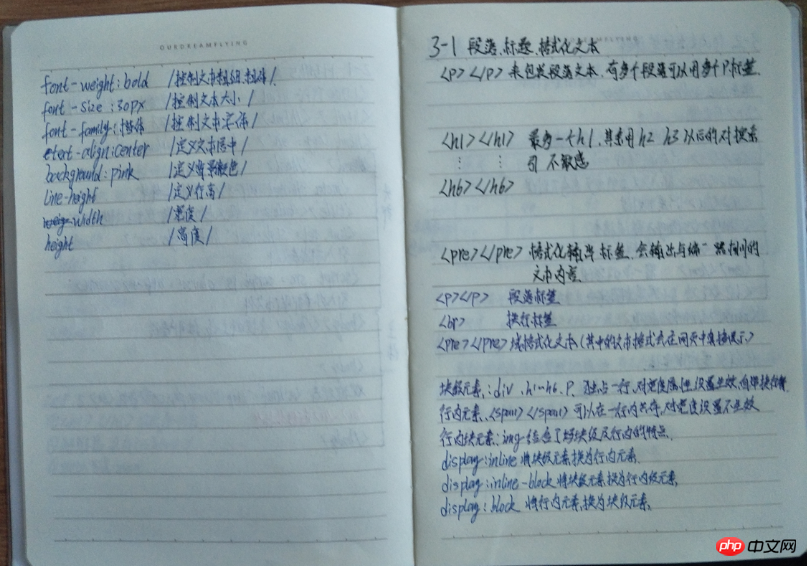 OURDREAMFLYING
font-weight:bold /控制文本粗细,粗体/
font-size:30px /控制文本大小/
font-family:楷体 /控制文本字体/
text-align:center /定义文本居中/
background:pink /定义背景颜色/
line-height /定义行高/
width /宽度/
height /高度/
3-1 段落、标题、格式化文本
<p></p> 来包裹段落文本,有多个段落可以用多个P标签
<h1></h1> 最多一个h1,其累用h2 h3以后的对搜索
引 不敏感
<h6></h6>
<pre></pre> 格式化标签,会输出与编 器相同的
文本内容
<p></p> 段落标签
<br> 换行标签
<pre></pre>格式化文本(其中的文本格式会在网页中直接显示)
块级元素:div、h1~h6、P、独占一行,对宽度属性设置生效
行内元素、<span></span>可以在一行内共存,对宽度设置不生效
行内块元素:img 结合了块级及行内的特点
display:inline 将块级元素换为行内元素
display:inline-block 将块级元素换为行内级元素
display:block 将行内元素换为块级元素
php 中文网